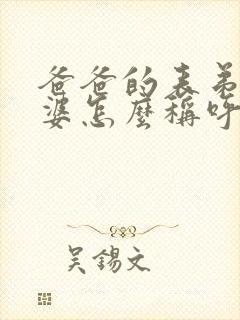 爸爸的表弟
婆怎麼稱呼
吴錫文